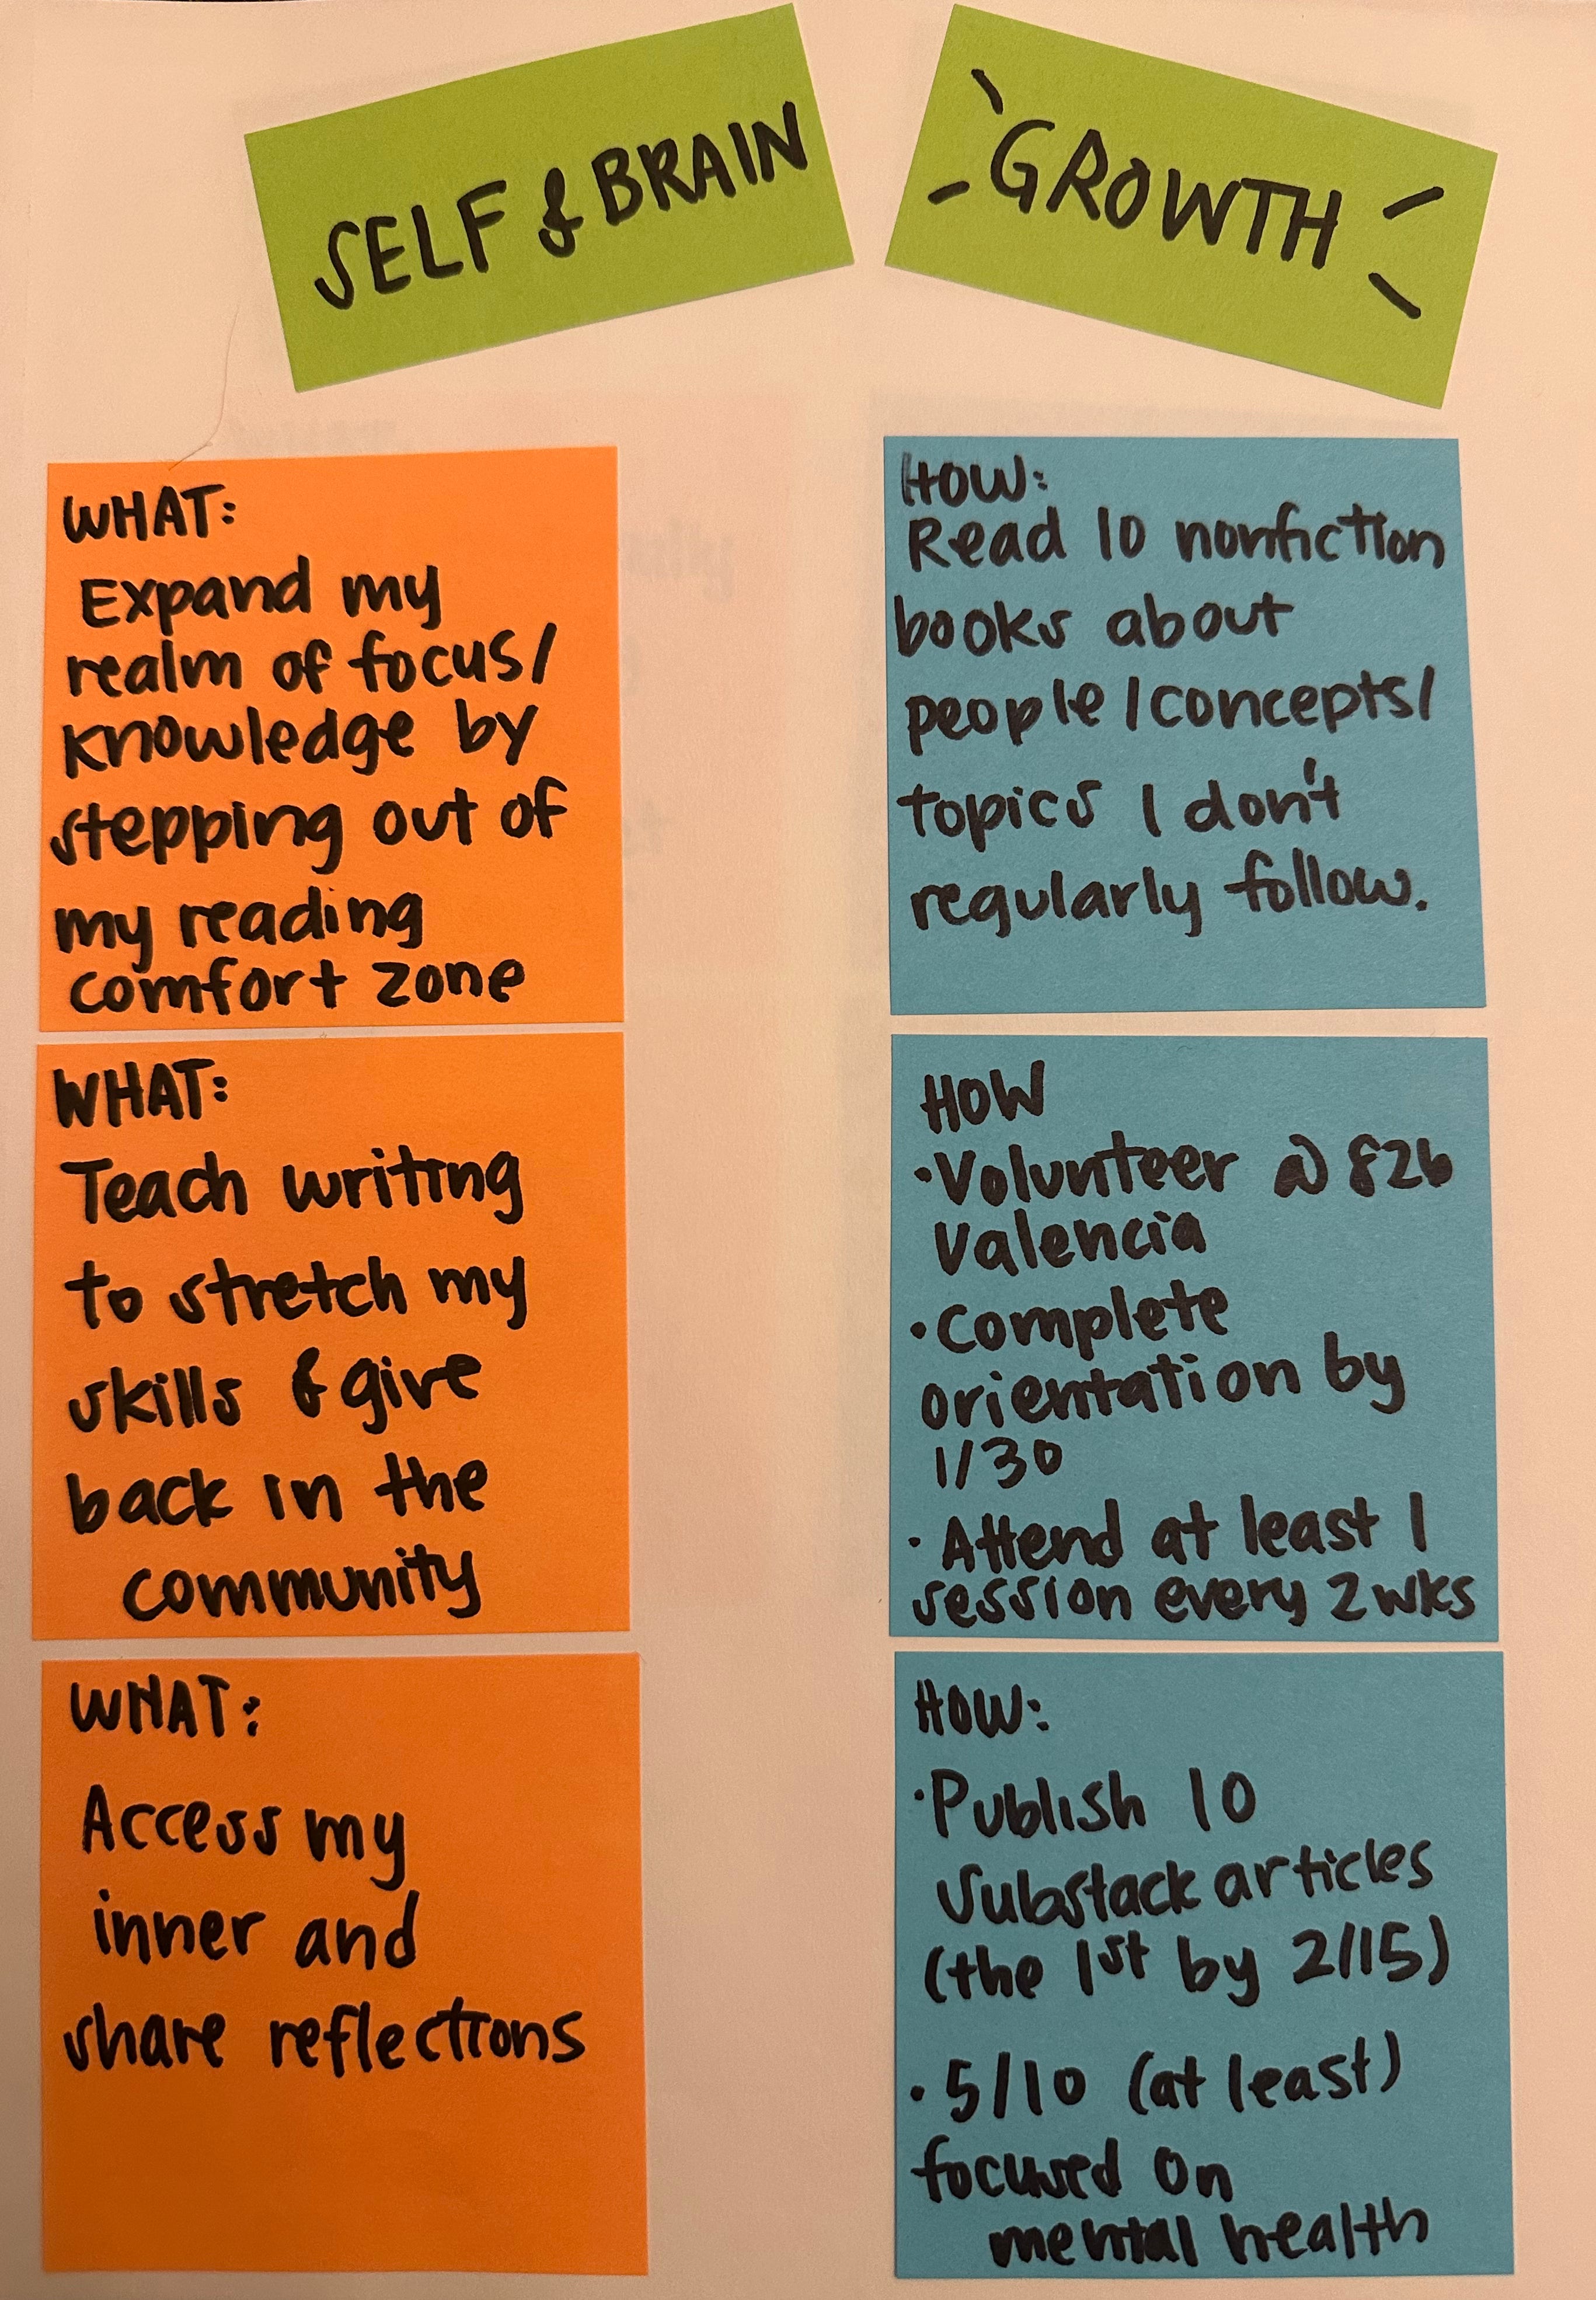 SELF & BRAIN
GROWTH
WHAT:
Expand my
realm of focus/
knowledge by
stepping out of
my reading
comfort zone
HOW:
Read 10 nonfiction
books about
people/concepts/
topics I don't
regularly follow.
WHAT:
Teach writing
to stretch my
skills & give
back in the
community
HOW
• Volunteer @ 826
Valencia
• Complete
orientation by
1/30
• Attend at least 1
session every 2 wks
WHAT:
Access my
inner and
share reflections
HOW:
• Publish 10
Substack articles
(the 1st by 2/15)
• 5/10 (at least)
focused on
mental health